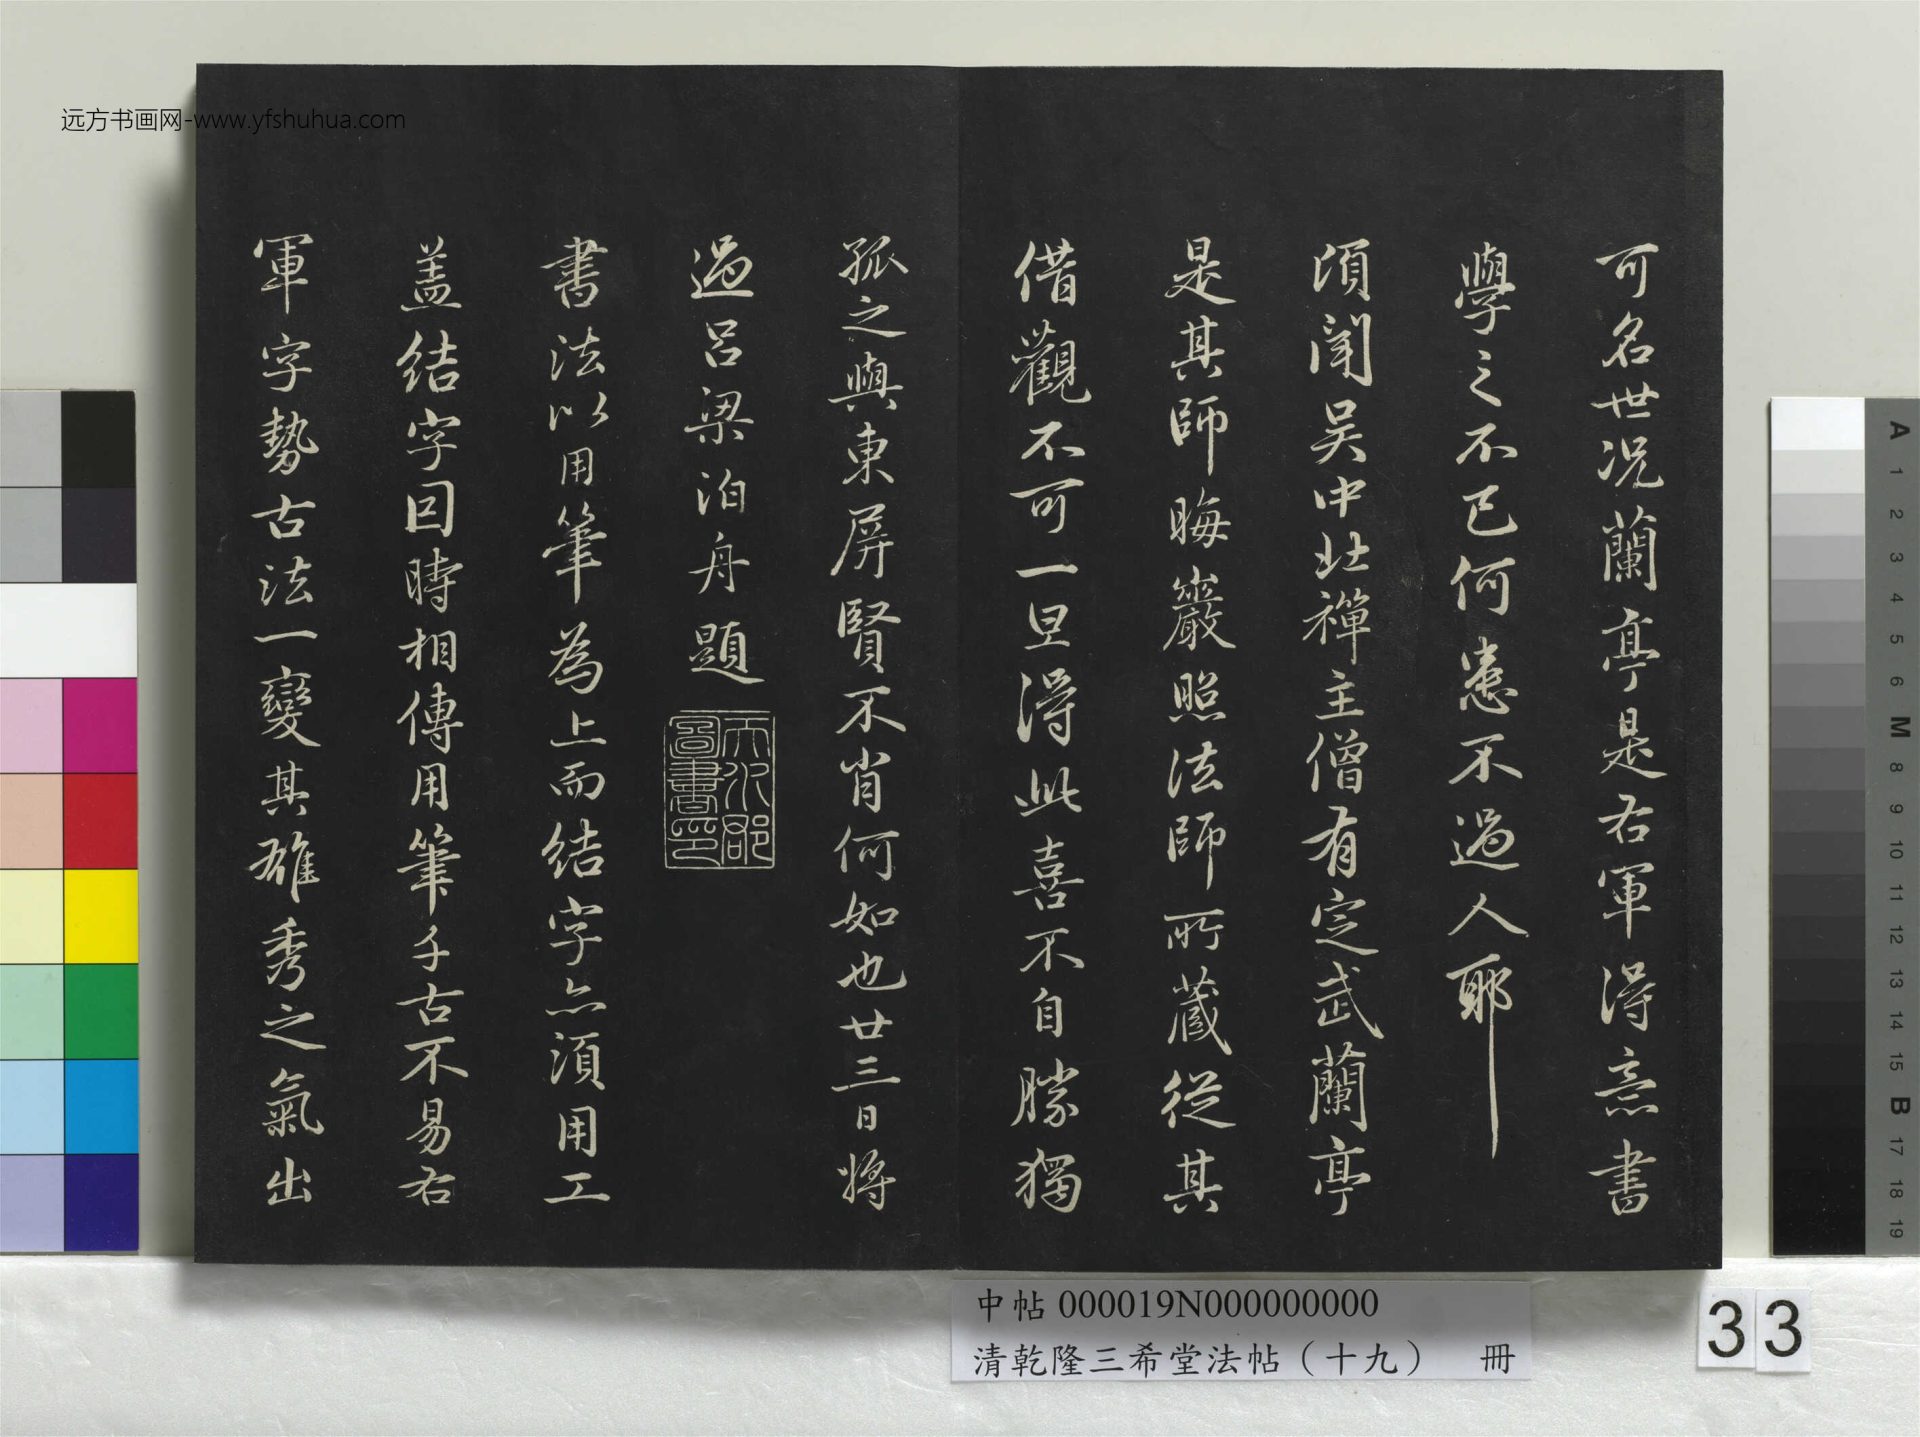 可名世況蘭亭是右軍得意書
學之不已何患不過人耶
頃聞吴中北禪主僧有定武蘭亭
是其師晦巖照法師所藏從其
借觀不可一旦得此喜不自勝獨
孤之與東屏賢不肖何如也廿三日將
過呂梁泊舟題
天水郡圖書印
書法以用筆為上而結字亦須用工
盖結字因時相傳用筆千古不易右
軍字勢古法一變其雄秀之氣出
远方书画网-www.yfshuhua.com
中帖 000019N000000000
清乾隆三希堂法帖（十九） 冊
33
A 1 2 3 4 5 6 M 8 9 10 11 12 13 14 15 B 17 18 19